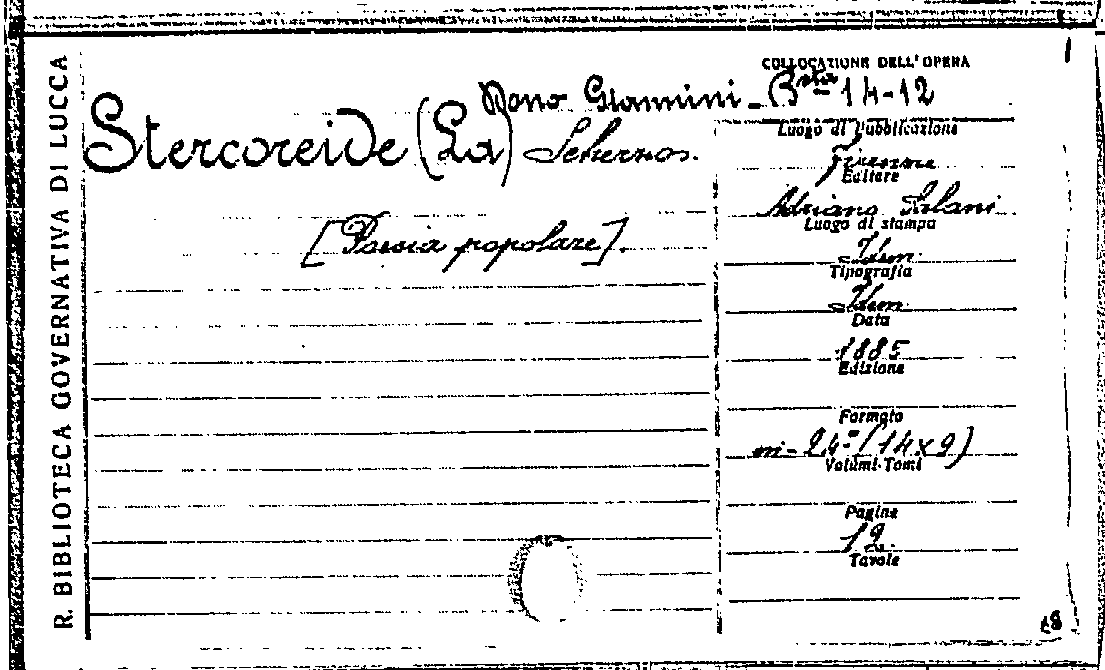 R. BIBLIOTECA GOVERNATIVA DI LUCCA
COLLOCAZIONE DELL'OPERA
Dono Giannini - Bsta 14-12
Stercoreide (La) Scherzo.
[Poesia popolare].
Luogo di Pubblicazione
Firenze
Editore
Adriano Salani
Luogo di stampa
Idem
Tipografia
Idem
Data
1885
Edizione
Formato
in-24° (14x9)
Volumi-Tomi
Pagine
12
Tavole